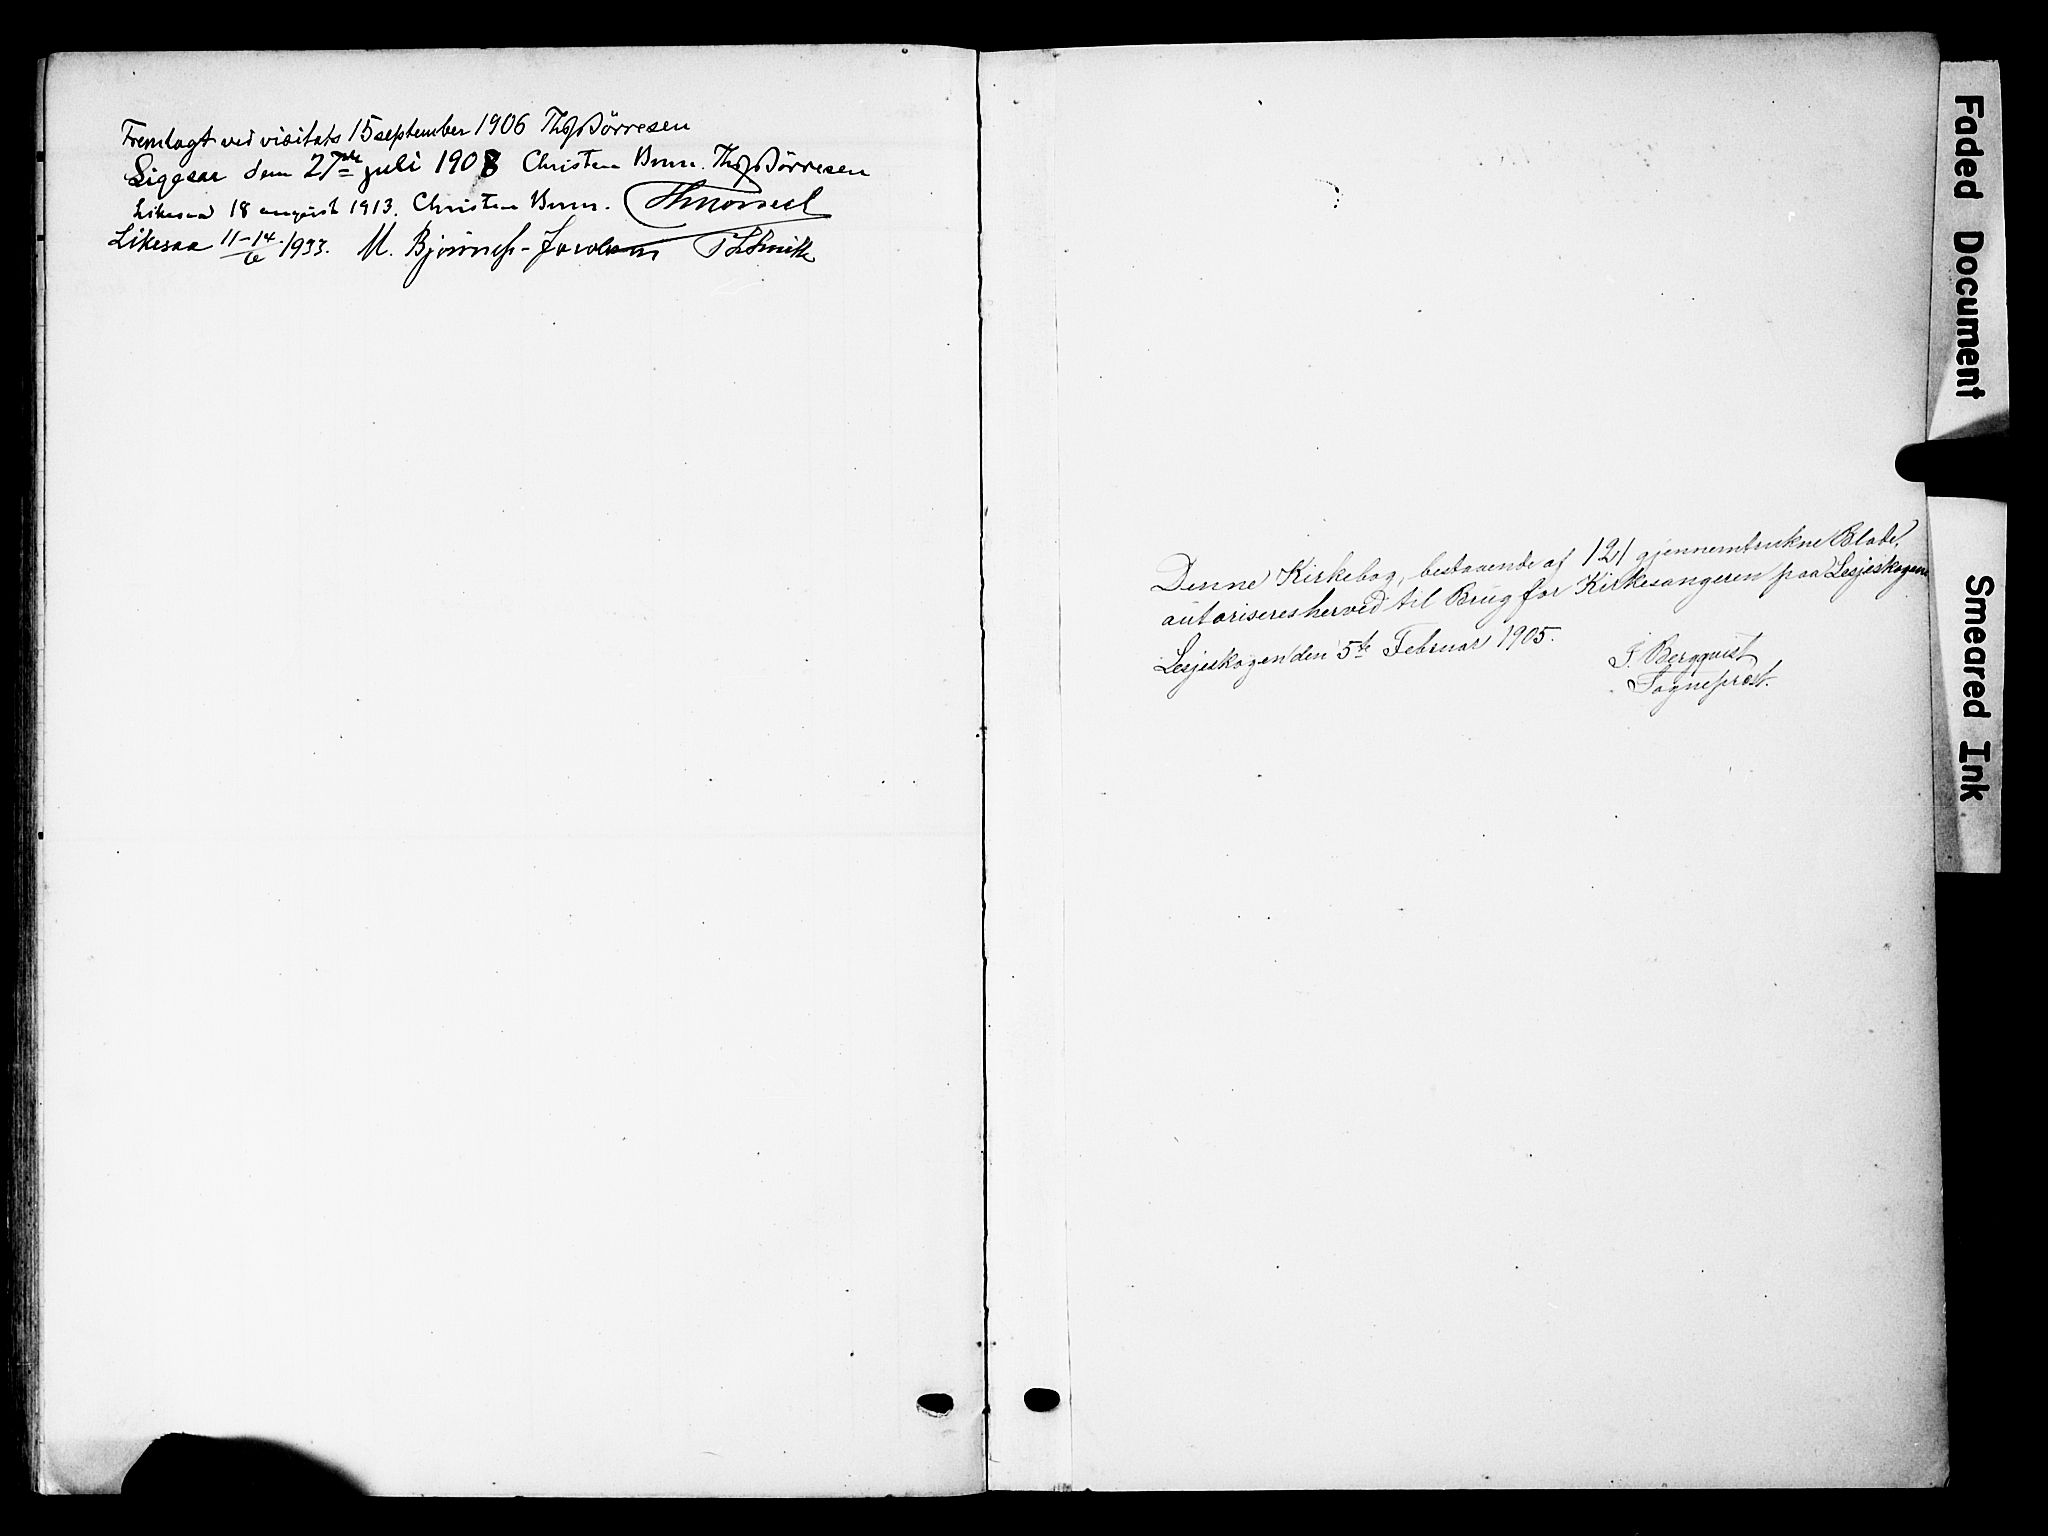 Fremlagt ved visitats 15 september 1906 Th Börresen
Ligesaa den 27de juli 1908 Christen Brun. Th Börresen
Likesaa 18 august 1913. Christen Brun.
Likesaa 11-14/6 1933. M. Bjønness-Jacobsen
Denne Kirkebog, bestaaende af 121 gjennemtrukne Blade,
autoriseres herved til Brug for Kirkesangeren paa Lesjeskogen
Lesjeskogen den 5te Februar 1905.
J. Bergqvist
Sogneprest.
Faded Document
Smeared Ink